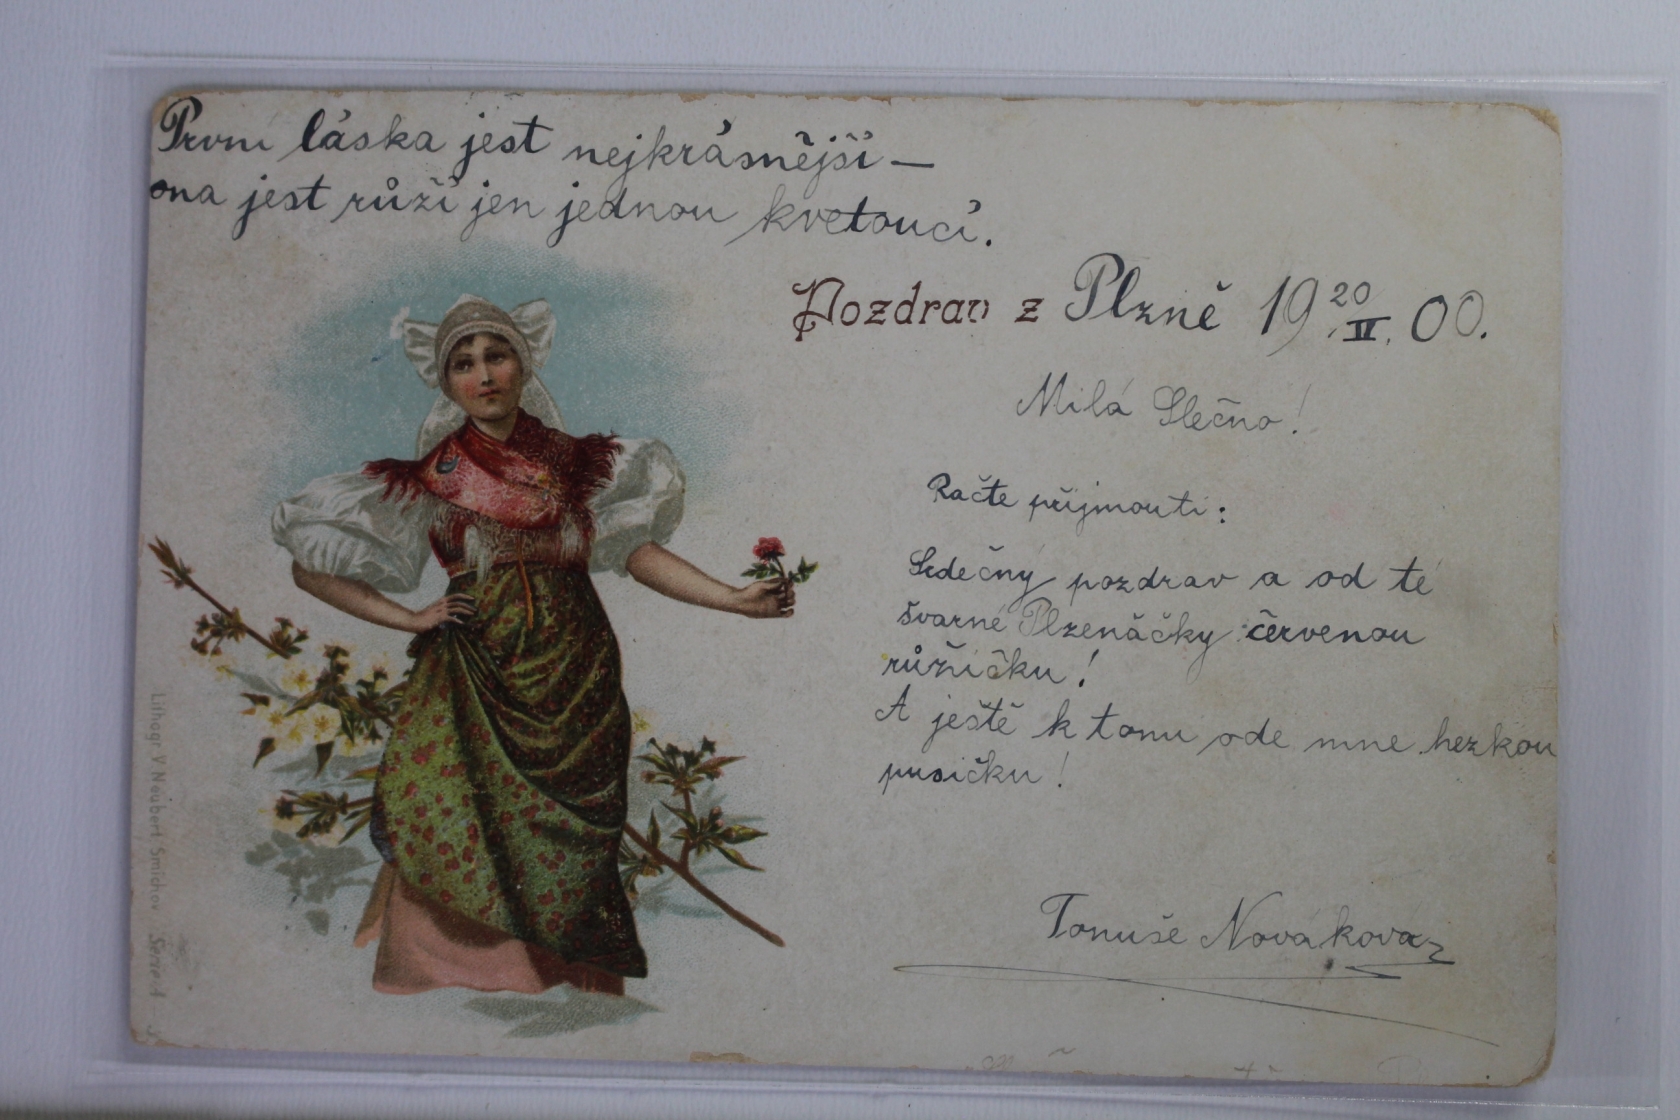 První láska jest nejkrásnější —
ona jest růží jen jednou kvetoucí.
Pozdrav z Plzně 19 20/IV. 00.
Milá Slečno!
Račte přijmouti:
Srdečný pozdrav a od té
švarné Plzenáčky červenou
růžičku!
A ještě k tomu ode mne hezkou
pusičku!
Tonuše Nováková
Lithogr V Neubert Smíchov Serie